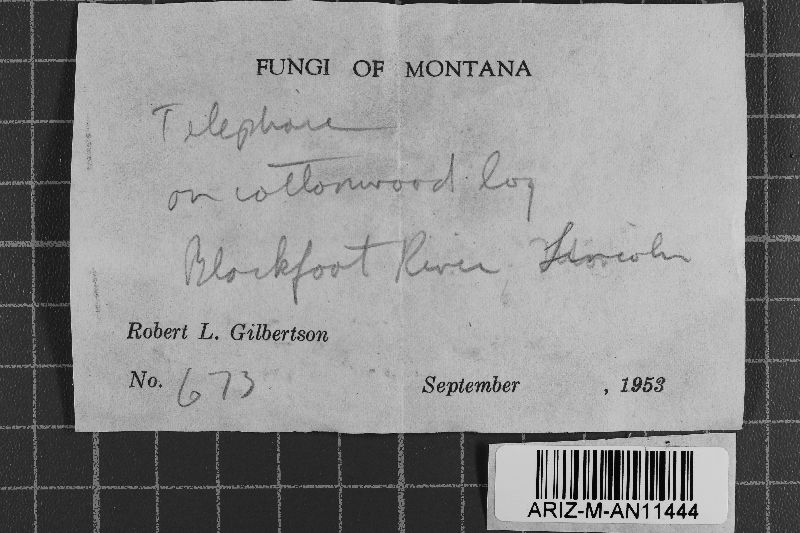 FUNGI OF MONTANA
Telephore
on cottonwood log
Blackfoot River, Lincoln
Robert L. Gilbertson
No. 673 September , 1953
ARIZ-M-AN11444